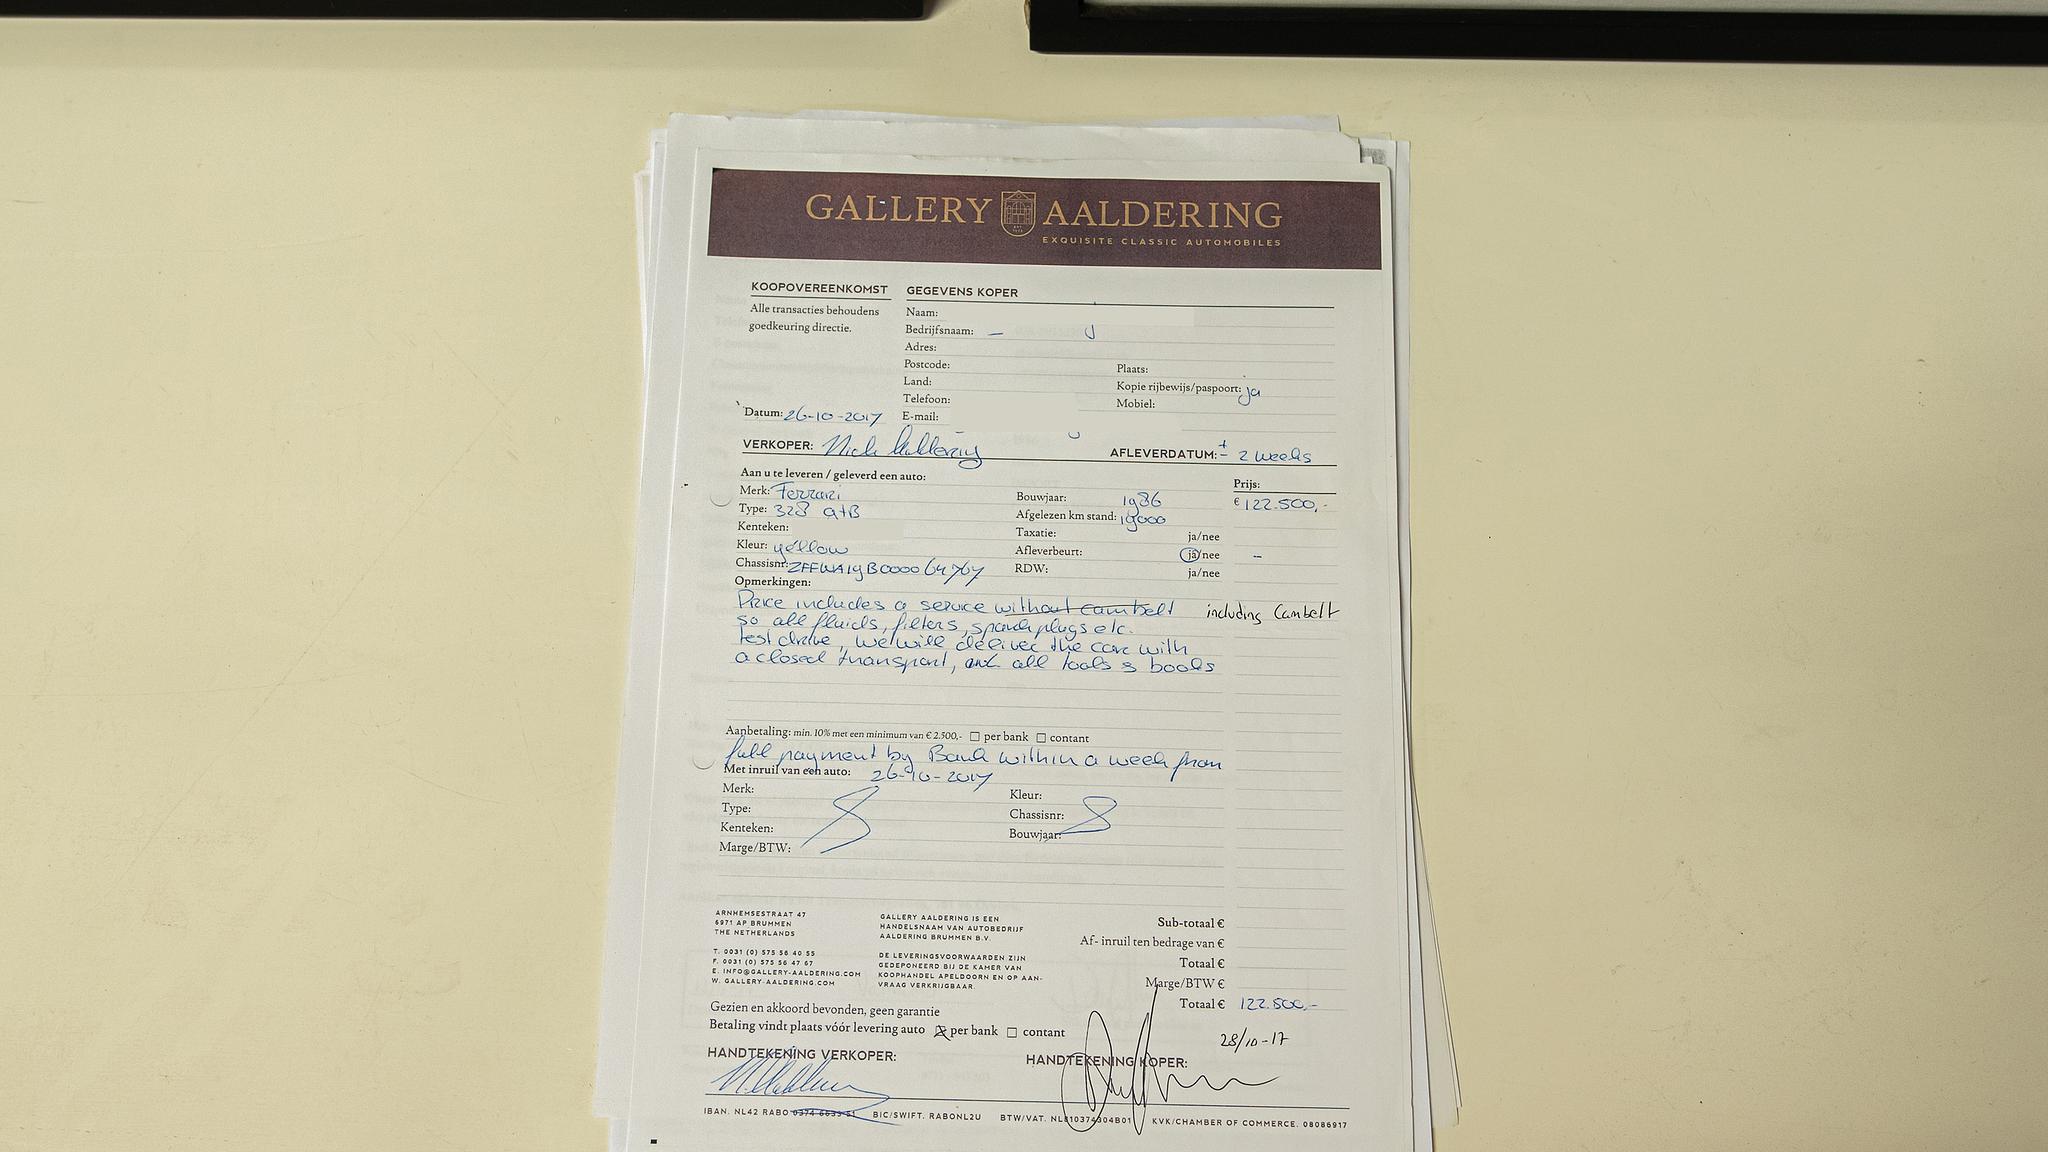 GALLERY AALDERING
EXQUISITE CLASSIC AUTOMOBILES
KOOPOVEREENKOMST
Alle transacties behoudens
goedkeuring directie.
Datum: 26-10-2017
GEGEVENS KOPER
Naam:
Bedrijfsnaam: –
Adres:
Postcode: Plaats:
Land: Kopie rijbewijs/paspoort: ja
Telefoon: Mobiel:
E-mail:
VERKOPER: Nick Aaldering AFLEVERDATUM: ± 2 weeks
Aan u te leveren / geleverd een auto: Prijs:
Merk: Ferrari Bouwjaar: 1986 € 122.500,-
Type: 328 GTB Afgelezen km stand: 19000
Kenteken: Taxatie: ja/nee
Kleur: yellow Afleverbeurt: ja/nee –
Chassisnr: ZFFWA19B000064767 RDW: ja/nee
Opmerkingen:
Price includes a service without cambelt including Cambelt
so all fluids, filters, sparkplugs etc.
test drive, we will deliver the car with
a closed transport, and all tools & books
Aanbetaling: min. 10% met een minimum van € 2.500,- per bank contant
full payment by Bank within a week from
Met inruil van een auto: 26-10-2017
Merk: Kleur:
Type: Chassisnr:
Kenteken: Bouwjaar:
Marge/BTW:
ARNHEMSESTRAAT 47
6971 AP BRUMMEN
THE NETHERLANDS
T. 0031 (0) 575 56 40 55
F. 0031 (0) 575 56 47 67
E. INFO@GALLERY-AALDERING.COM
W. GALLERY-AALDERING.COM
GALLERY AALDERING IS EEN
HANDELSNAAM VAN AUTOBEDRIJF
AALDERING BRUMMEN B.V.
DE LEVERINGSVOORWAARDEN ZIJN
GEDEPONEERD BIJ DE KAMER VAN
KOOPHANDEL APELDOORN EN OP AAN-
VRAAG VERKRIJGBAAR.
Sub-totaal €
Af- inruil ten bedrage van €
Totaal €
Marge/BTW €
Totaal € 122.500,-
Gezien en akkoord bevonden, geen garantie
Betaling vindt plaats vóór levering auto per bank contant
28/10-17
HANDTEKENING VERKOPER: HANDTEKENING KOPER:
IBAN. NL42 RABO 0374 6633 51 BIC/SWIFT. RABONL2U BTW/VAT. NL810374304B01 KVK/CHAMBER OF COMMERCE. 08086917